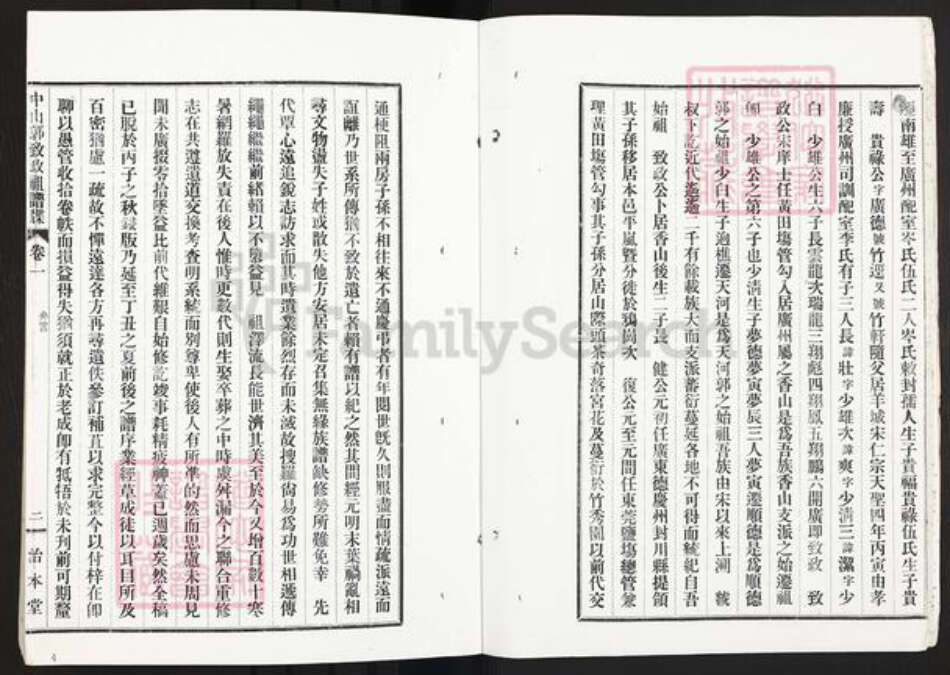 南雄至廣州配室岑氏伍氏二人岑氏敕封孺人生子貴福貴祿伍氏生子貴
壽 貴祿公字廣德號竹逕又號竹軒隨父居羊城宋仁宗天聖四年丙寅由孝
廉授廣州司訓配室李氏有子三人長諱壯字少雄次諱爽字少清三諱潔字少
白 少雄公生六子長雲龍次瑞龍三翔彪四翔鳳五翔鵬六開廣即致政 致
政公宋庠士任黃田塲管勾入居廣州屬之香山是爲吾族香山支派之始遷祖
少雄公之第六子也少清生子夢德夢寅夢辰三人夢寅遷順德是爲順德
郭之始祖少白生子迥樵遷天河是爲天河郭之始祖吾族由宋以來上溯 虢
叔下訖近代遙遙二千有餘載族大而支派蕃衍蔓延各地不可得而統紀自吾
始祖 致政公卜居香山後生二子長 健公元初任廣東德慶州封川縣提領
其子孫移居本邑平嵐曁分徙於鴉岡次 復公元至元間任東莞鹽塲總管兼
理黃田塲管勾事其子孫分居山際頭茶奇落宮花及蔓衍於竹秀園以前代交
通梗阻兩房子孫不相往來不通慶弔者有年閱世旣久則服盡而情疏派遠而
誼離乃世系所傳猶不致於遺亡者賴有譜以紀之然其間經元明末葉禍亂相
尋文物盡失子姓或散失他方安居未定召集無緣族譜缺修勢所難免幸 先
代覃心遠追銳志訪求而其時遺業餘烈存而未滅故搜羅尙易爲功世相遞傳
繩繩繼繼前緒賴以不墜益見 祖澤流長能世濟其美至於今又增百數十寒
暑網羅放失責在後人惟時更數代則生娶卒葬之中時虞舛漏今之聯合重修
志在共遵遺道交換考查明系統而別尊卑使後人有所準的然而思慮未周見
聞未廣掇零拾墜益比前代維艱自始修訖竣事耗精疲神蓋已週歲矣然全稿
已脫於丙子之秋錄版乃延至丁丑之夏前後之譜序業經草成徒以耳目所及
百密猶慮一疏故不憚遠達各方再尋遺佚參訂補苴以求完整今以付梓在即
聊以愚管收拾卷帙而損益得失猶須就正於老成即有牴牾於未刋前可期釐
中山郭致政祖譜牒 卷一
弁言
二
治本堂
FamilySearch